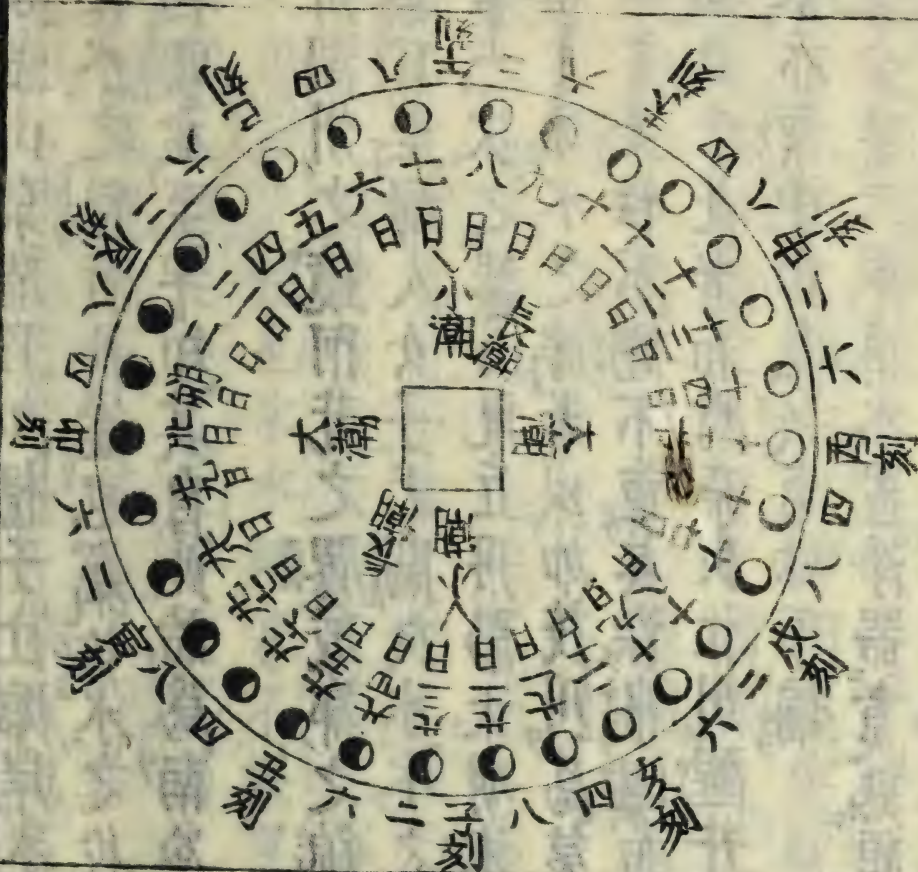 午刻
二
六
未刻
四
八
申刻
二
六
酉刻
四
八
戌刻
二
六
亥刻
四
八
子刻
二
六
丑刻
四
八
寅刻
二
六
卯刻
四
八
辰刻
二
六
巳刻
四
八
朔日
二日
三日
四日
五日
六日
七日
八日
九日
十日
十一日
十二日
十三日
十四日
十六日
十七日
十八日
十九日
二十日
廿一日
廿二日
廿三日
廿四日
廿五日
廿六日
廿七日
廿八日
廿九日
卅日
小潮
長潮
大潮
小潮
大潮